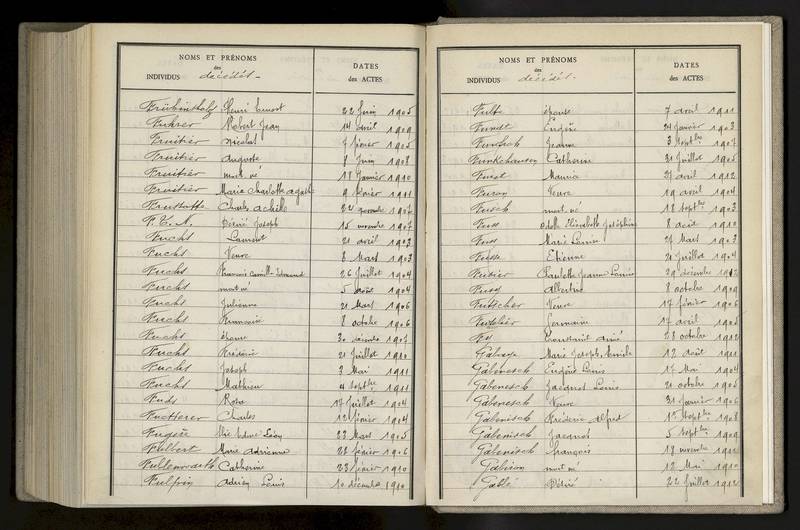 NOMS ET PRÉNOMS
des
INDIVIDUS décédés
DATES
des ACTES
Frübinsholz Henri Ernest 22 Juin 1905
Fuhrer Robert Jean 14 avril 1909
Fruitier Nicolas 7 février 1905
Fruitier Auguste 8 Juin 1908
Fruitier mort né 18 Janvier 1910
Fruitier Marie Charlotte Agathe 9 février 1911
Charles Achille 22 novembre 1907
Désiré Joseph 15 novembre 1907
Fuchs Laurent 21 avril 1903
Fuchs Veuve 8 Mars 1903
Fuchs François Camille 26 Juillet 1904
Fuchs mort né 5 août 1904
Fuchs Julienne 21 Mars 1906
Fuchs Françoise 8 octobre 1906
Fuchs épouse 30 décembre 1907
Fuchs Frédéric 21 Juillet 1910
Fuchs Joseph 3 Mai 1911
Fuchs Mathieu 4 septbre 1911
Fuds Rosa 17 Juillet 1904
Charles 12 février 1904
Fugère 23 Mars 1905
Fulbert Marie Adrienne 28 février 1906
Catherine 23 février 1910
Fulpin Adrien Louis 10 décembre 1910
NOMS ET PRÉNOMS
des
INDIVIDUS décédés
DATES
des ACTES
épouse 7 avril 1911
Fundt Eugène 24 Janvier 1903
Jeanne 3 septbre 1907
Funkhausen Catherine 31 Juillet 1905
Maurice 21 avril 1912
Furon Veuve 19 avril 1904
Fusch mort né 18 septbre 1903
Fuss Odile Elisabeth Joséphine 8 août 1910
Fuss Marie Louise 27 Mars 1903
Etienne 21 Juillet 1904
Fusier Charlotte Jeanne Louise 29 décembre 1912
Fusy Albertine 8 octobre 1909
Futscher Veuve 17 février 1906
Germaine 17 avril 1905
Fy Constant Aimé 28 octobre 1912
Marie Joseph 12 août 1911
Gabenesch Eugène Louis 17 Mai 1904
Gabenesch Jacques Louis 21 octobre 1905
Gabenesch Veuve 31 Janvier 1906
Gabenisch Frédéric Alfred septbre 1908
Gabenisch Jacques 5 septbre 1909
Gabenisch François 18 novembre 1912
mort né 12 Mai 1910
Gablé Désiré 22 Juillet 1912